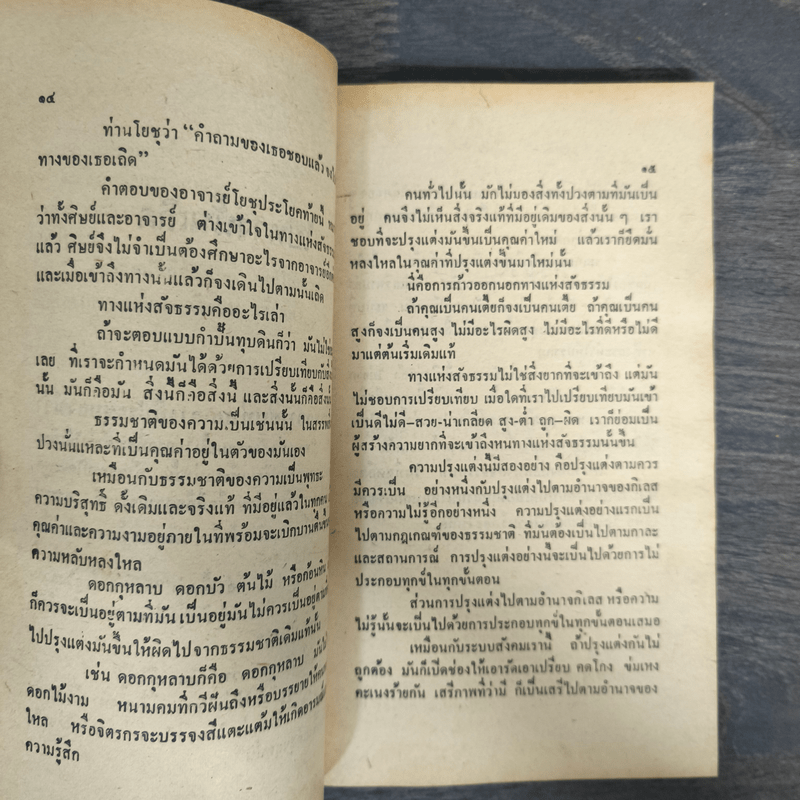 ๑๔
ท่านโยชุว่า “คำถามของเธอชอบแล้ว
ทางของเธอเถิด”
คำตอบของอาจารย์โยชุประโยคท้ายนี้
ว่าทั้งศิษย์และอาจารย์ ต่างเข้าใจในทางแห่งสัจธรรม
แล้ว ศิษย์จึงไม่จำเป็นต้องศึกษาอะไรจากอาจารย์อีก
และเมื่อเข้าถึงทางนั้นแล้วก็จงเดินไปตามนั้นเถิด
ทางแห่งสัจธรรมคืออะไรเล่า
ถ้าจะตอบแบบกำปั้นทุบดินก็ว่า มันไม่ใช่
เลย ที่เราจะกำหนดมันได้ด้วยการเปรียบเทียบกับสิ่ง
นั้น มันก็คือมัน สิ่งนี้ก็คือสิ่งนี้ และสิ่งนั้นก็คือสิ่งนั้น
ธรรมชาติของความเป็นเช่นนั้น ในสรรพสิ่ง
ปวงนั่นแหละที่เป็นคุณค่าอยู่ในตัวของมันเอง
เหมือนกับธรรมชาติของความเป็นพุทธะ
ความบริสุทธิ์ ดั้งเดิมและจริงแท้ ที่มีอยู่แล้วในทุกคน
คุณค่าและความงามอยู่ภายในที่พร้อมจะเบิกบานตื่นขึ้น
ความหลับหลงใหล
ดอกกุหลาบ ดอกบัว ต้นไม้ หรือก้อนหิน
ก็ควรจะเป็นอยู่ตามที่มัน เป็นอยู่มันไม่ควรเป็นอยู่ตามที่
ไปปรุงแต่งมันขึ้นให้ผิดไปจากธรรมชาติเดิมแท้นั้น
เช่น ดอกกุหลาบก็คือ ดอกกุหลาบ มันไม่
ดอกไม้งาม หนามคมที่กวีฝันถึงหรือบรรยายให้
ไหล หรือจิตรกรจะบรรจงสีแตะแต้มให้เกิดอารมณ์
ความรู้สึก
๑๕
คนทั่วไปนั้น มักไม่มองสิ่งทั้งปวงตามที่มันเป็น
อยู่ คนจึงไม่เห็นสิ่งจริงแท้ที่มีอยู่เดิมของสิ่งนั้น ๆ เรา
ชอบที่จะปรุงแต่งมันขึ้นเป็นคุณค่าใหม่ แล้วเราก็ยึดมั่น
หลงใหลในคุณค่าที่ปรุงแต่งขึ้นมาใหม่นั้น
นี่คือการก้าวออกนอกทางแห่งสัจธรรม
ถ้าคุณเป็นคนเตี้ยก็จงเป็นคนเตี้ย ถ้าคุณเป็นคน
สูงก็จงเป็นคนสูง ไม่มีอะไรผิดสูง ไม่มีอะไรที่ดีหรือไม่ดี
มาแต่ต้นเริ่มเดิมแท้
ทางแห่งสัจธรรมไม่ใช่สิ่งยากที่จะเข้าถึง แต่มัน
ไม่ชอบการเปรียบเทียบ เมื่อใดที่เราไปเปรียบเทียบมันเข้า
เป็นดีไม่ดี–สวย-น่าเกลียด สูง-ต่ำ ถูก–ผิด เราก็ย่อมเป็น
ผู้สร้างความยากที่จะเข้าถึงหนทางแห่งสัจธรรมนั้นขึ้น
ความปรุงแต่งนี้มีสองอย่าง คือปรุงแต่งตามควร
มีควรเป็น อย่างหนึ่งกับปรุงแต่งไปตามอำนาจของกิเลส
หรือความไม่รู้อีกอย่างหนึ่ง ความปรุงแต่งอย่างแรกเป็น
ไปตามกฎเกณฑ์ของธรรมชาติ ที่มันต้องเป็นไปตามกาละ
และสถานการณ์ การปรุงแต่งอย่างนี้จะเป็นไปด้วยการไม่
ประกอบทุกข์ในทุกขั้นตอน
ส่วนการปรุงแต่งไปตามอำนาจกิเลส หรือความ
ไม่รู้นั้นจะเป็นไปด้วยการประกอบทุกข์ในทุกขั้นตอนเสมอ
เหมือนกับระบบสังคมเรานี้ ถ้าปรุงแต่งกันไม่
ถูกต้อง มันก็เปิดช่องให้เอารัดเอาเปรียบ คดโกง ข่มเหง
คะเนงร้ายกัน เสรีภาพที่ว่ามี ก็เป็นเสรีไปตามอำนาจของ